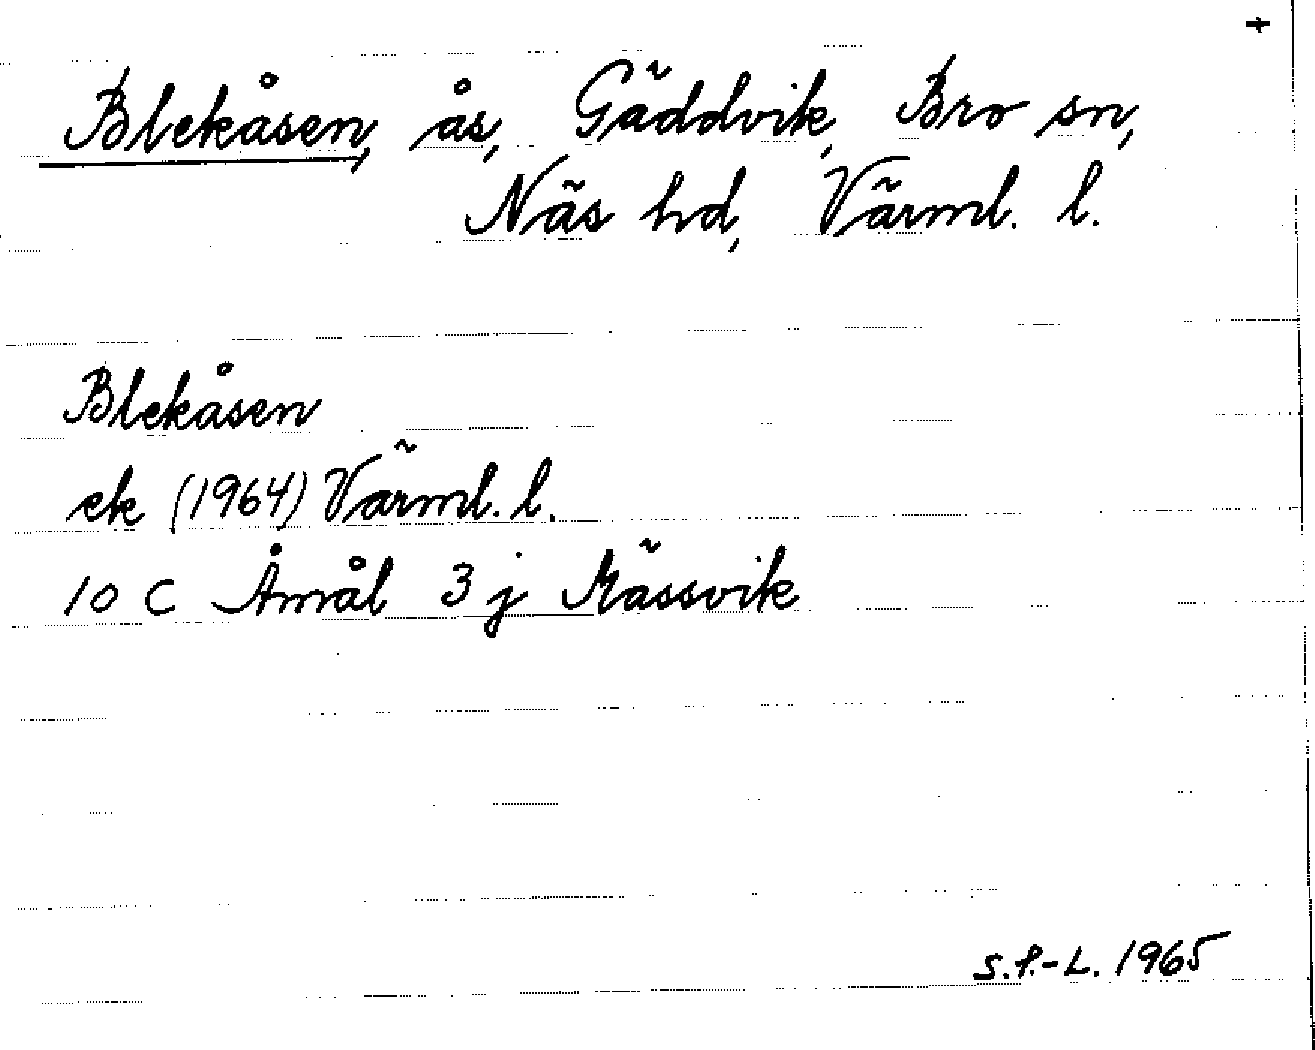 +
Blekåsen, ås, Gäddvik, Bro sn,
Näs hd, Värml. l.
Blekåsen
ek (1964) Värml. l.
10 C Åmål 3 j Mässvik
S.P.-L. 1965